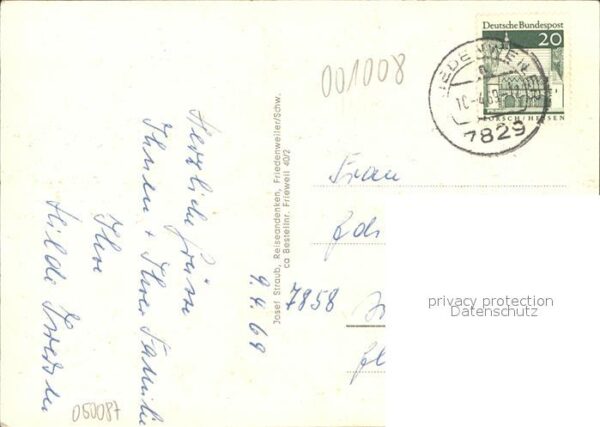 Herzliche Grüsse
Ihnen + Ihrer Familie
Ihre
Hilde
9.4.69
050087
Josef Straub, Reiseandenken, Friedenweiler/Schw.
ca Bestellnr. Frieweil 40/2
001008
Deutsche Bundespost
20
LORSCH/HESSEN
10.-4.69-12
7829
Frau
Edi
7858
privacy protection
Datenschutz